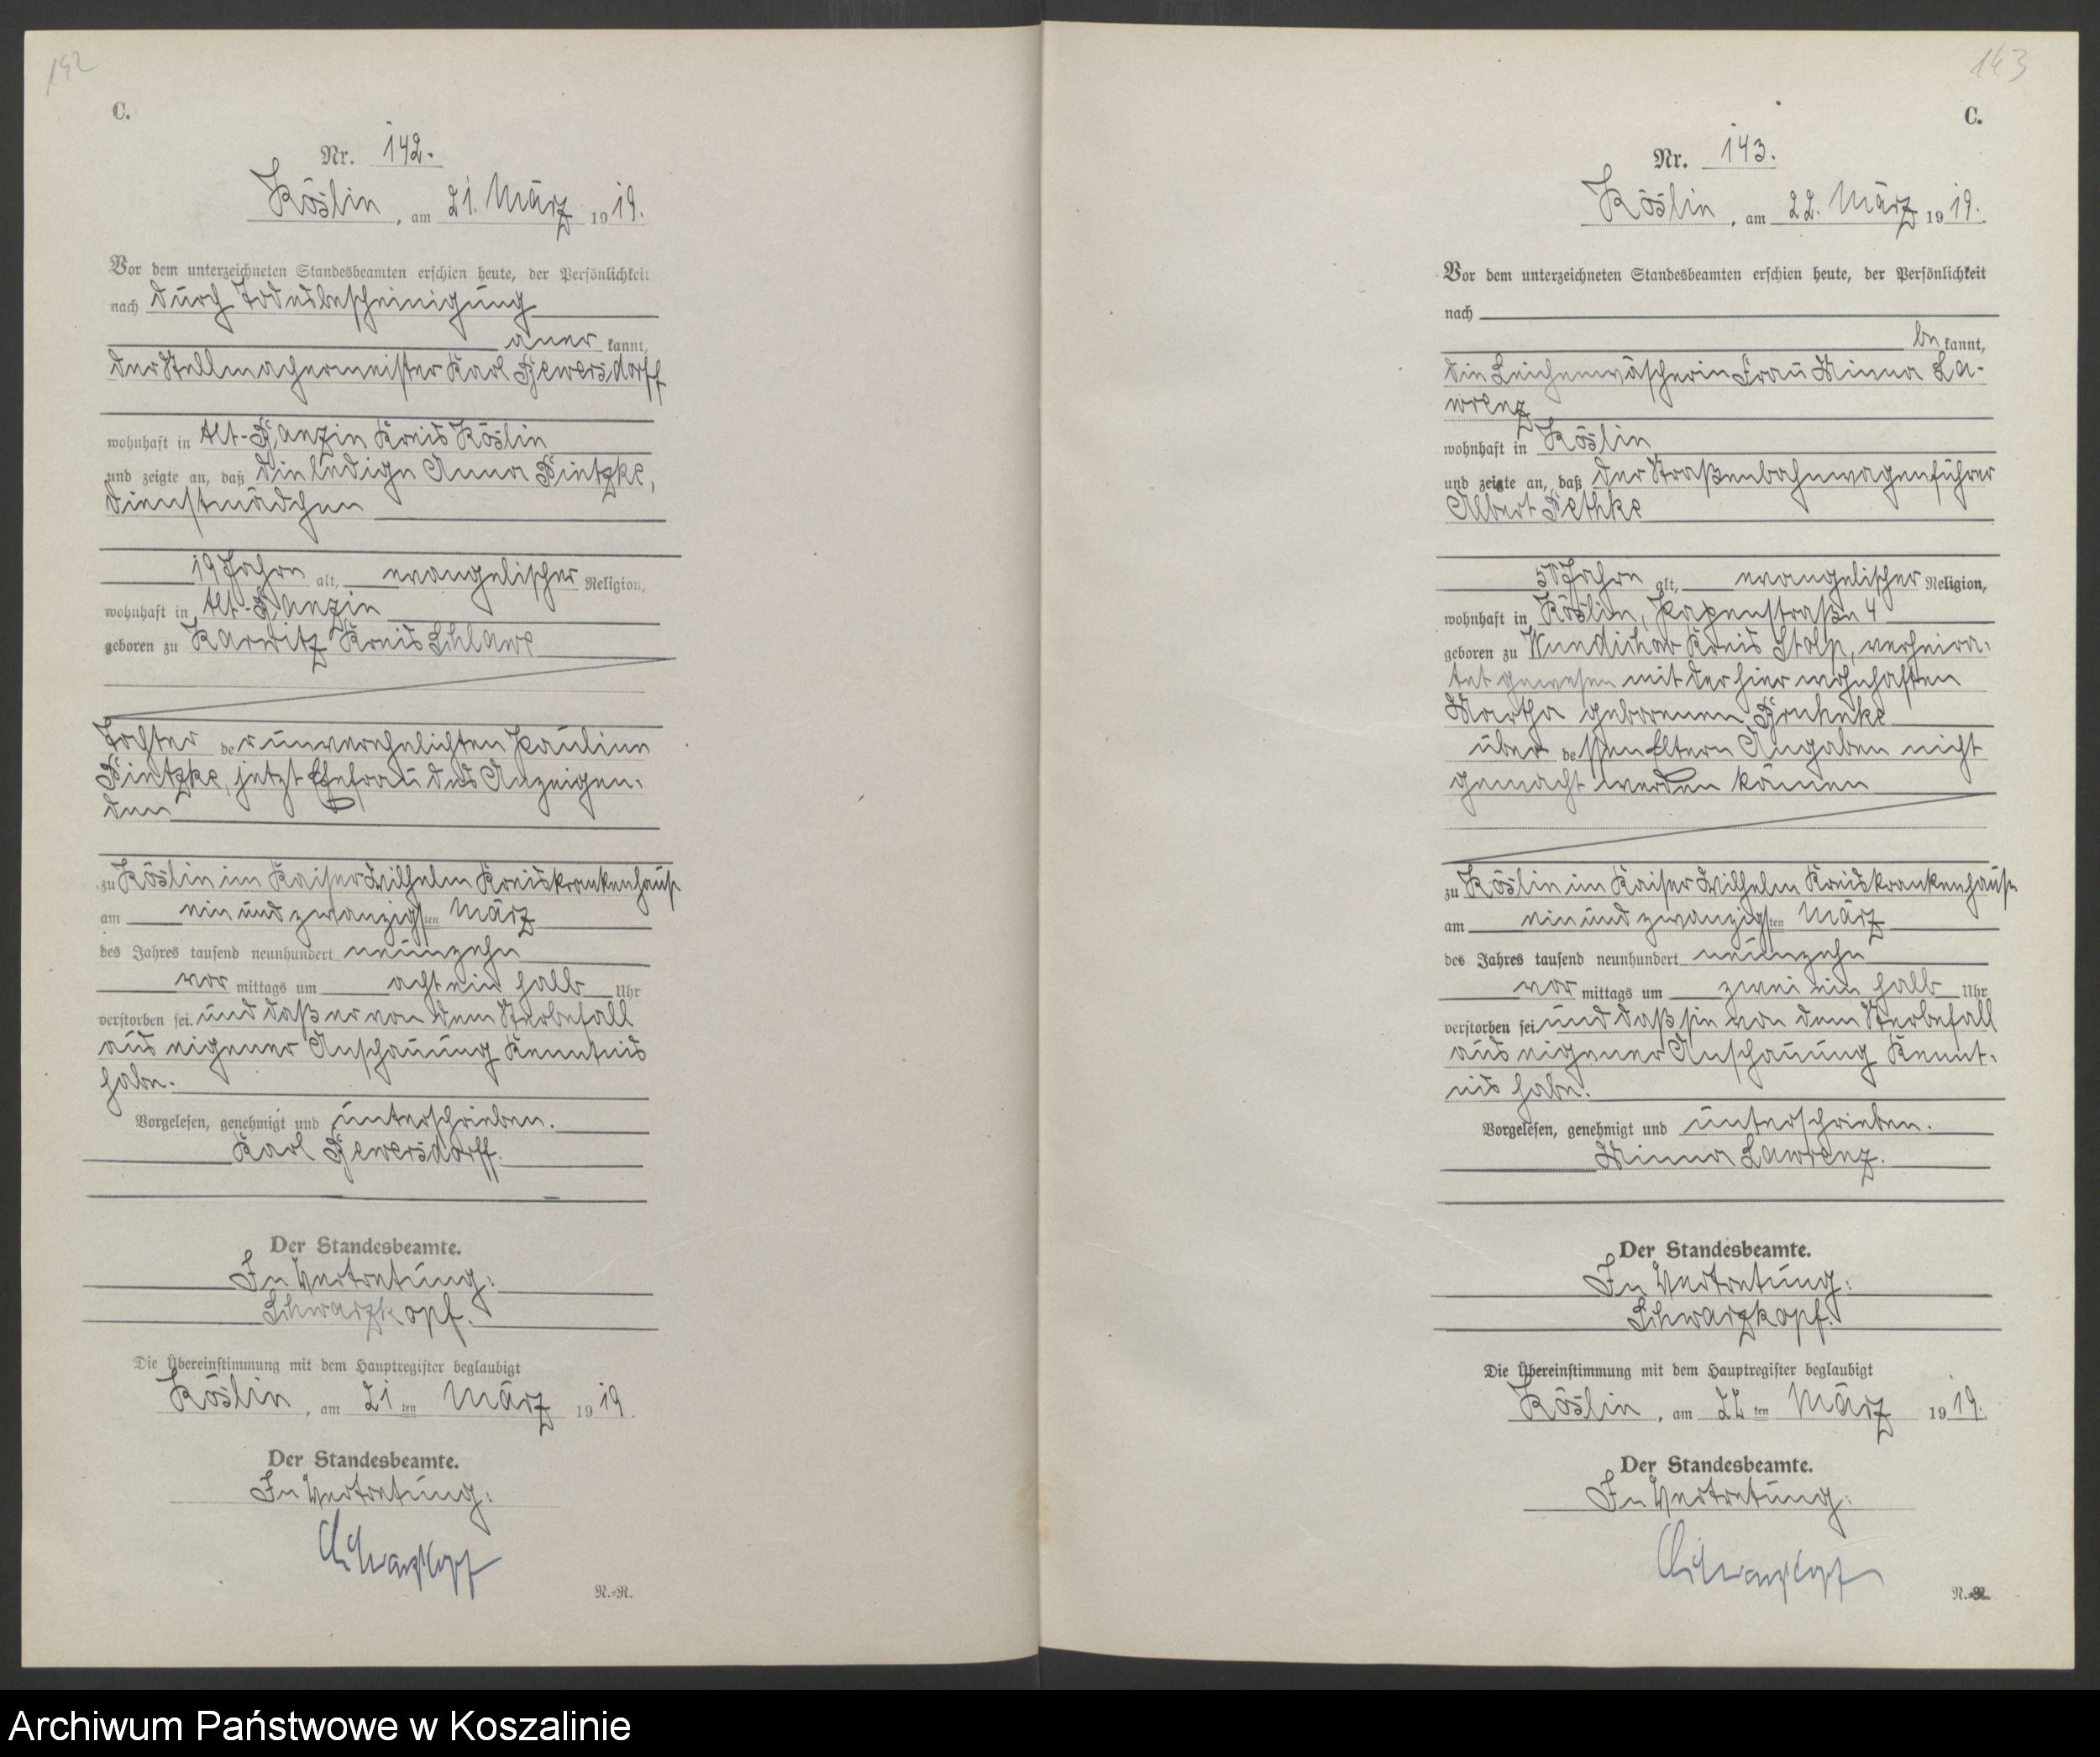 142
C.
Nr. 142.
Köslin, am 21. März 1919.
Vor dem unterzeichneten Standesbeamten erschien heute, der Persönlichkeit
nach durch Todesbescheinigung
aner kannt,
der Stellmachermeister Karl Gewersdorff
wohnhaft in Alt-Banzin Kreis Köslin
und zeigte an, daß die ledige Anna Pietzke,
Dienstmädchen
19 Jahre alt, evangelischer Religion,
wohnhaft in Alt-Banzin
geboren zu Karwitz Kreis Schlawe
Tochter der unverehelichten Pauline
Pietzke, jetzt Ehefrau des Anzeigen-
den
zu Köslin im Kaiser Wilhelm Kreiskrankenhause
am ein und zwanzigsten März
des Jahres tausend neunhundert neunzehn
vor mittags um acht ein halb Uhr
verstorben sei. und daß er von dem Sterbefall
aus eigener Anschauung Kenntnis
habe.
Vorgelesen, genehmigt und unterschrieben.
Karl Gewersdorff.
Der Standesbeamte.
In Vertretung:
Schwarzkopf.
Die Übereinstimmung mit dem Hauptregister beglaubigt
Köslin, am 21ten März 1919.
Der Standesbeamte.
In Vertretung:
Schwarzkopf
N.-R.
143
C.
Nr. 143.
Köslin, am 22. März 1919.
Vor dem unterzeichneten Standesbeamten erschien heute, der Persönlichkeit
nach
be kannt,
die Leichenwäscherin Frau Minna La-
wrenz
wohnhaft in Köslin
und zeigte an, daß der Straßenbahnwagenführer
Albert Pethke
50 Jahre alt, evangelischer Religion,
wohnhaft in Köslin, Papenstraße 4
geboren zu Wundichow Kreis Stolp, verheira-
tet gewesen mit der hier wohnhaften
Martha geborenen
über dessen Eltern Angaben nicht
gemacht werden können
zu Köslin im Kaiser Wilhelm Kreiskrankenhause
am ein und zwanzigsten März
des Jahres tausend neunhundert neunzehn
vor mittags um zwei ein halb Uhr
verstorben sei und daß sie von dem Sterbefall
aus eigener Anschauung Kennt-
nis habe.
Vorgelesen, genehmigt und unterschrieben.
Minna Lawrenz.
Der Standesbeamte.
In Vertretung:
Schwarzkopf.
Die Übereinstimmung mit dem Hauptregister beglaubigt
Köslin, am 22ten März 1919.
Der Standesbeamte.
In Vertretung:
Schwarzkopf
N.-R.
Archiwum Państwowe w Koszalinie